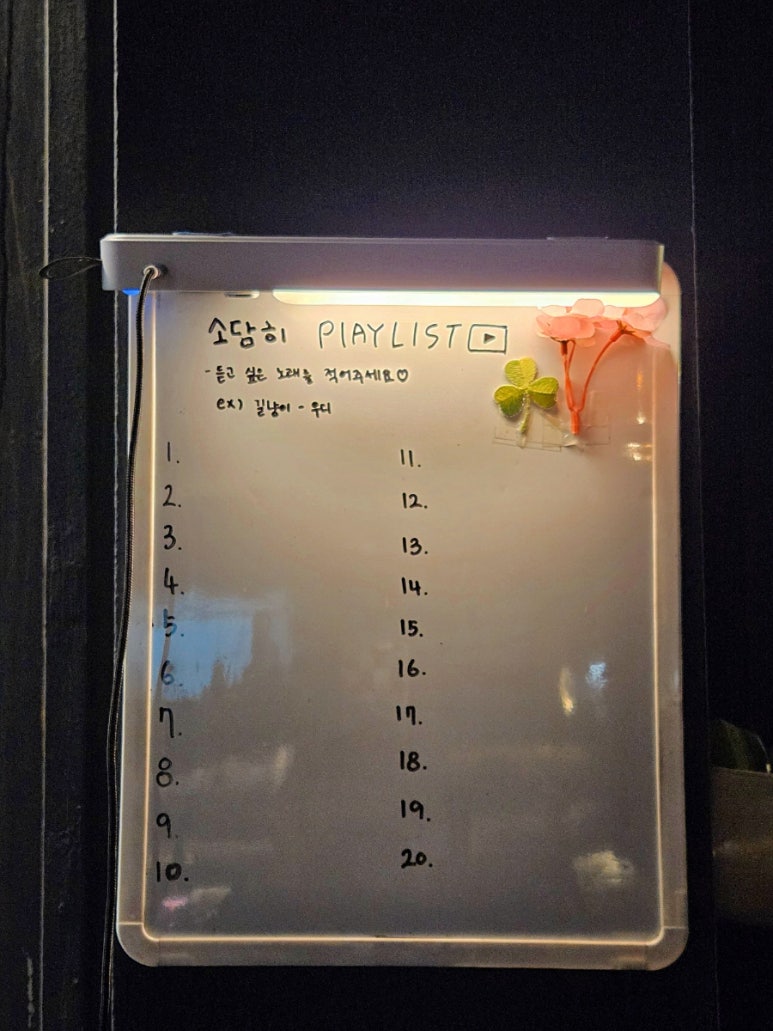 소담히 PLAYLIST
- 듣고 싶은 노래를 적어주세요♡
ex) 길냥이 - 우디
1.
2.
3.
4.
5.
6.
7.
8.
9.
10.
11.
12.
13.
14.
15.
16.
17.
18.
19.
20.